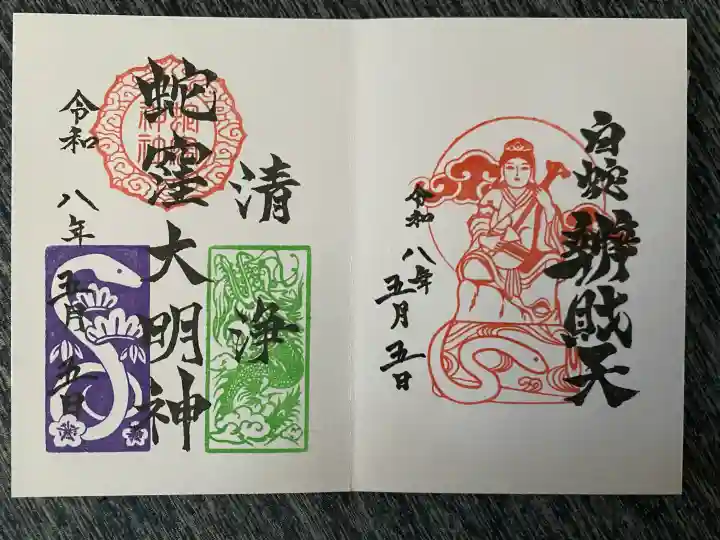 白蛇辨財天
令和八年
五月五日
清浄
蛇窪大明神
令和八年
五月五日